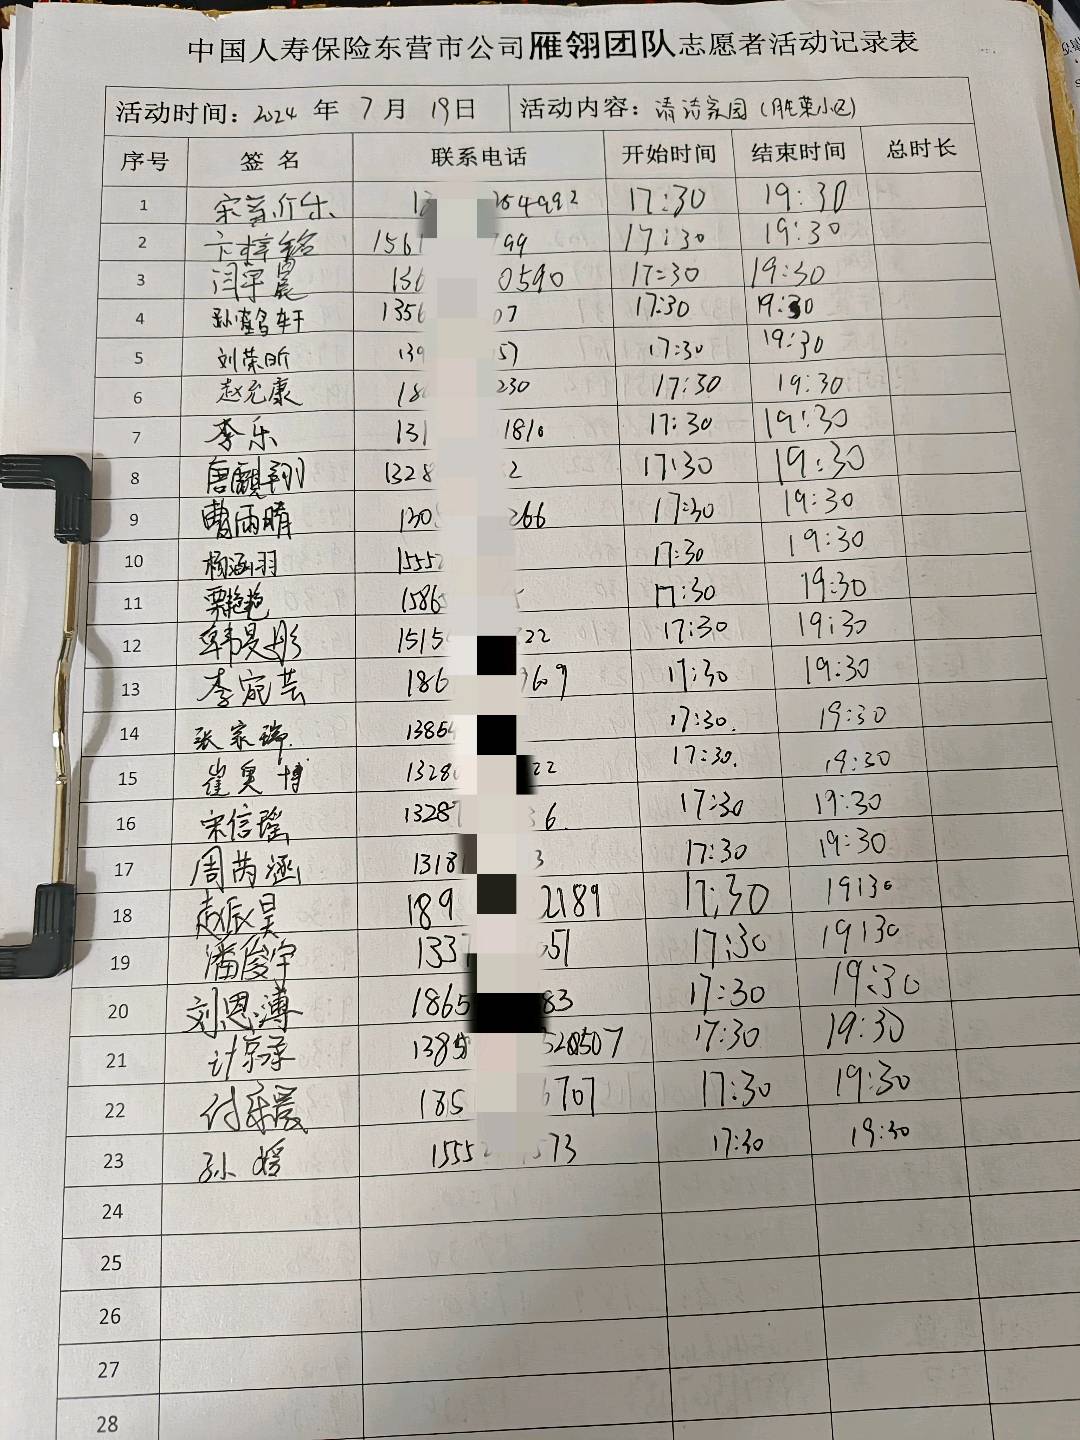 中国人寿保险东营市公司雁翎团队志愿者活动记录表
活动时间: 2024 年 7 月 19日 活动内容: 清洁家园 (胜莱小区)
序号 签 名 联系电话 开始时间 结束时间 总时长
1 宋 乐 13 54992 17:30 19:30
2 卞梓铭 1561 799 17:30 19:30
3 闫宇晨 136 0590 17:30 19:30
4 孙 轩 1356 07 17:30 19:30
5 刘荣昕 139 57 17:30 19:30
6 赵允康 18 230 17:30 19:30
7 李乐 131 1810 17:30 19:30
8 唐麒翔 1328 2 17:30 19:30
9 曹雨晴 130 266 17:30 19:30
10 杨涵羽 1555 17:30 19:30
11 栗艳艳 1586 17:30 19:30
12 韩曼彤 1515 322 17:30 19:30
13 李宛芸 186 969 17:30 19:30
14 张家瑞 1386 17:30. 19:30
15 崔奥博 1328 22 17:30. 19:30
16 宋信瑶 1328 36. 17:30 19:30
17 周芮涵 1318 3 17:30 19:30
18 赵辰昊 189 2189 17:30 19:30
19 潘俊宇 1337 051 17:30 19:30
20 刘恩溥 1865 83 17:30 19:30
21 计 1385 0507 17:30 19:30
22 付 185 6707 17:30 19:30
23 孙媛 1555 573 17:30 19:30
24
25
26
27
28